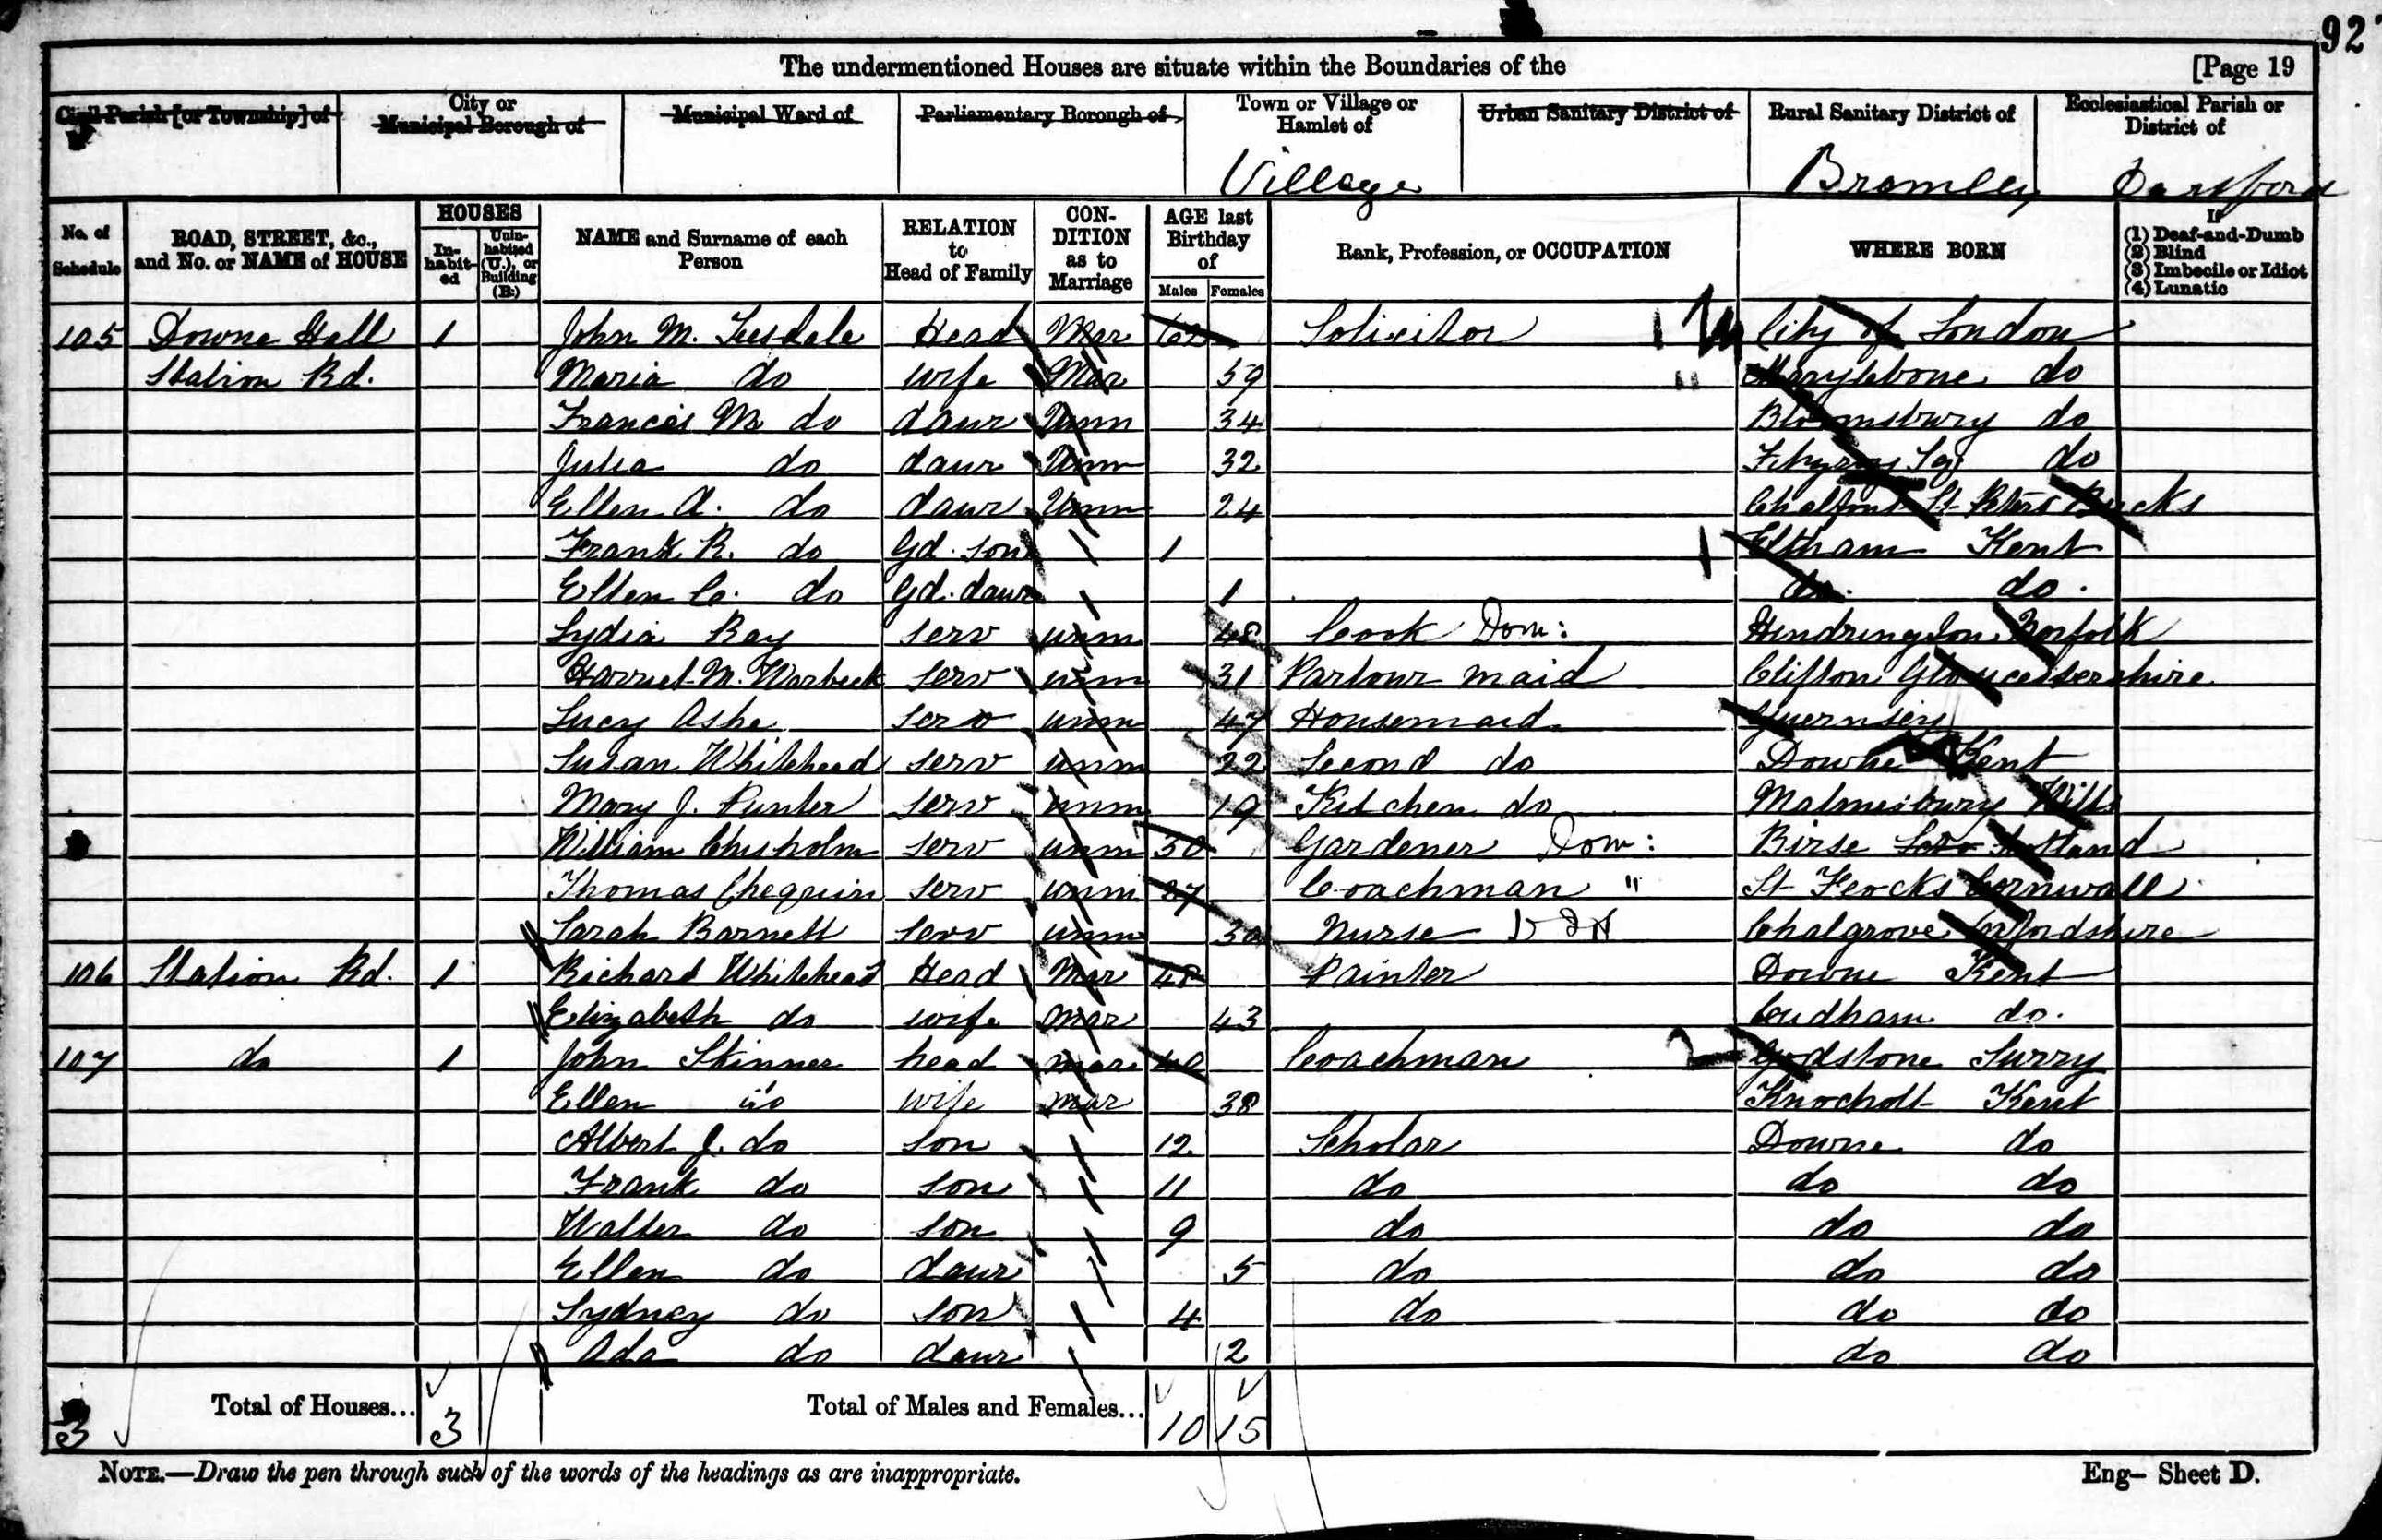 92
The undermentioned Houses are situate within the Boundaries of the [Page 19
Civil Parish [or Township] of City or Municipal Borough of Municipal Ward of Parliamentary Borough of Town or Village or Hamlet of Urban Sanitary District of Rural Sanitary District of Ecclesiastical Parish or District of
Village Bromley Dartford
No. of Schedule ROAD, STREET, &c., and No. or NAME of HOUSE HOUSES In-habit-ed Unin-habited (U.), or Building (B.) NAME and Surname of each Person RELATION to Head of Family CON-DITION as to Marriage AGE last Birthday of Males Females Rank, Profession, or OCCUPATION WHERE BORN If (1) Deaf-and-Dumb (2) Blind (3) Imbecile or Idiot (4) Lunatic
105 Downe Hall 1 John M. Teesdale Head Mar 62 Solicitor City of London
Station Rd. Maria do wife Mar 59 Marylebone do
Frances M do daur Unm 34 Bloomsbury do
Julia do daur Unm 32 Sq do
Ellen A. do daur Unm 24 Chalfont St Peters Bucks
Frank R. do Gd. son 1 Eltham Kent
Ellen C. do Gd. daur 1 do. do.
Lydia Ray serv unm 48 Cook Dom: Hindringdon Norfolk
Harriet M. Warbeck serv unm 31 Parlour maid Clifton Gloucestershire
Lucy Ashe serv unm 47 Housemaid Guernsey
Susan Whitehead serv unm 22 Second do Downe Kent
Mary J. Punter serv unm 19 Kitchen do Malmesbury Wilts
William Chisholm serv unm 30 Gardener Dom: Birse Scotland
Thomas Chequin serv unm 27 Coachman " St Cornwall
Sarah Barnett serv unm 30 Nurse Chalgrove Oxfordshire
106 Station Rd. 1 Richard Whitehead Head Mar 48 Painter Downe Kent
Elizabeth do wife Mar 43 Cudham do.
107 do 1 John Skinner head mar 40 Coachman Godstone Surry
Ellen do wife mar 38 Knockholt Kent
Albert J. do son 12 Scholar Downe do
Frank do son 11 do do do
Walter do son 9 do do do
Ellen do daur 5 do do do
Sydney do son 4 do do do
Ada do daur 2 do do
3 Total of Houses... 3 Total of Males and Females... 10 15
NOTE.—Draw the pen through such of the words of the headings as are inappropriate. Eng— Sheet D.